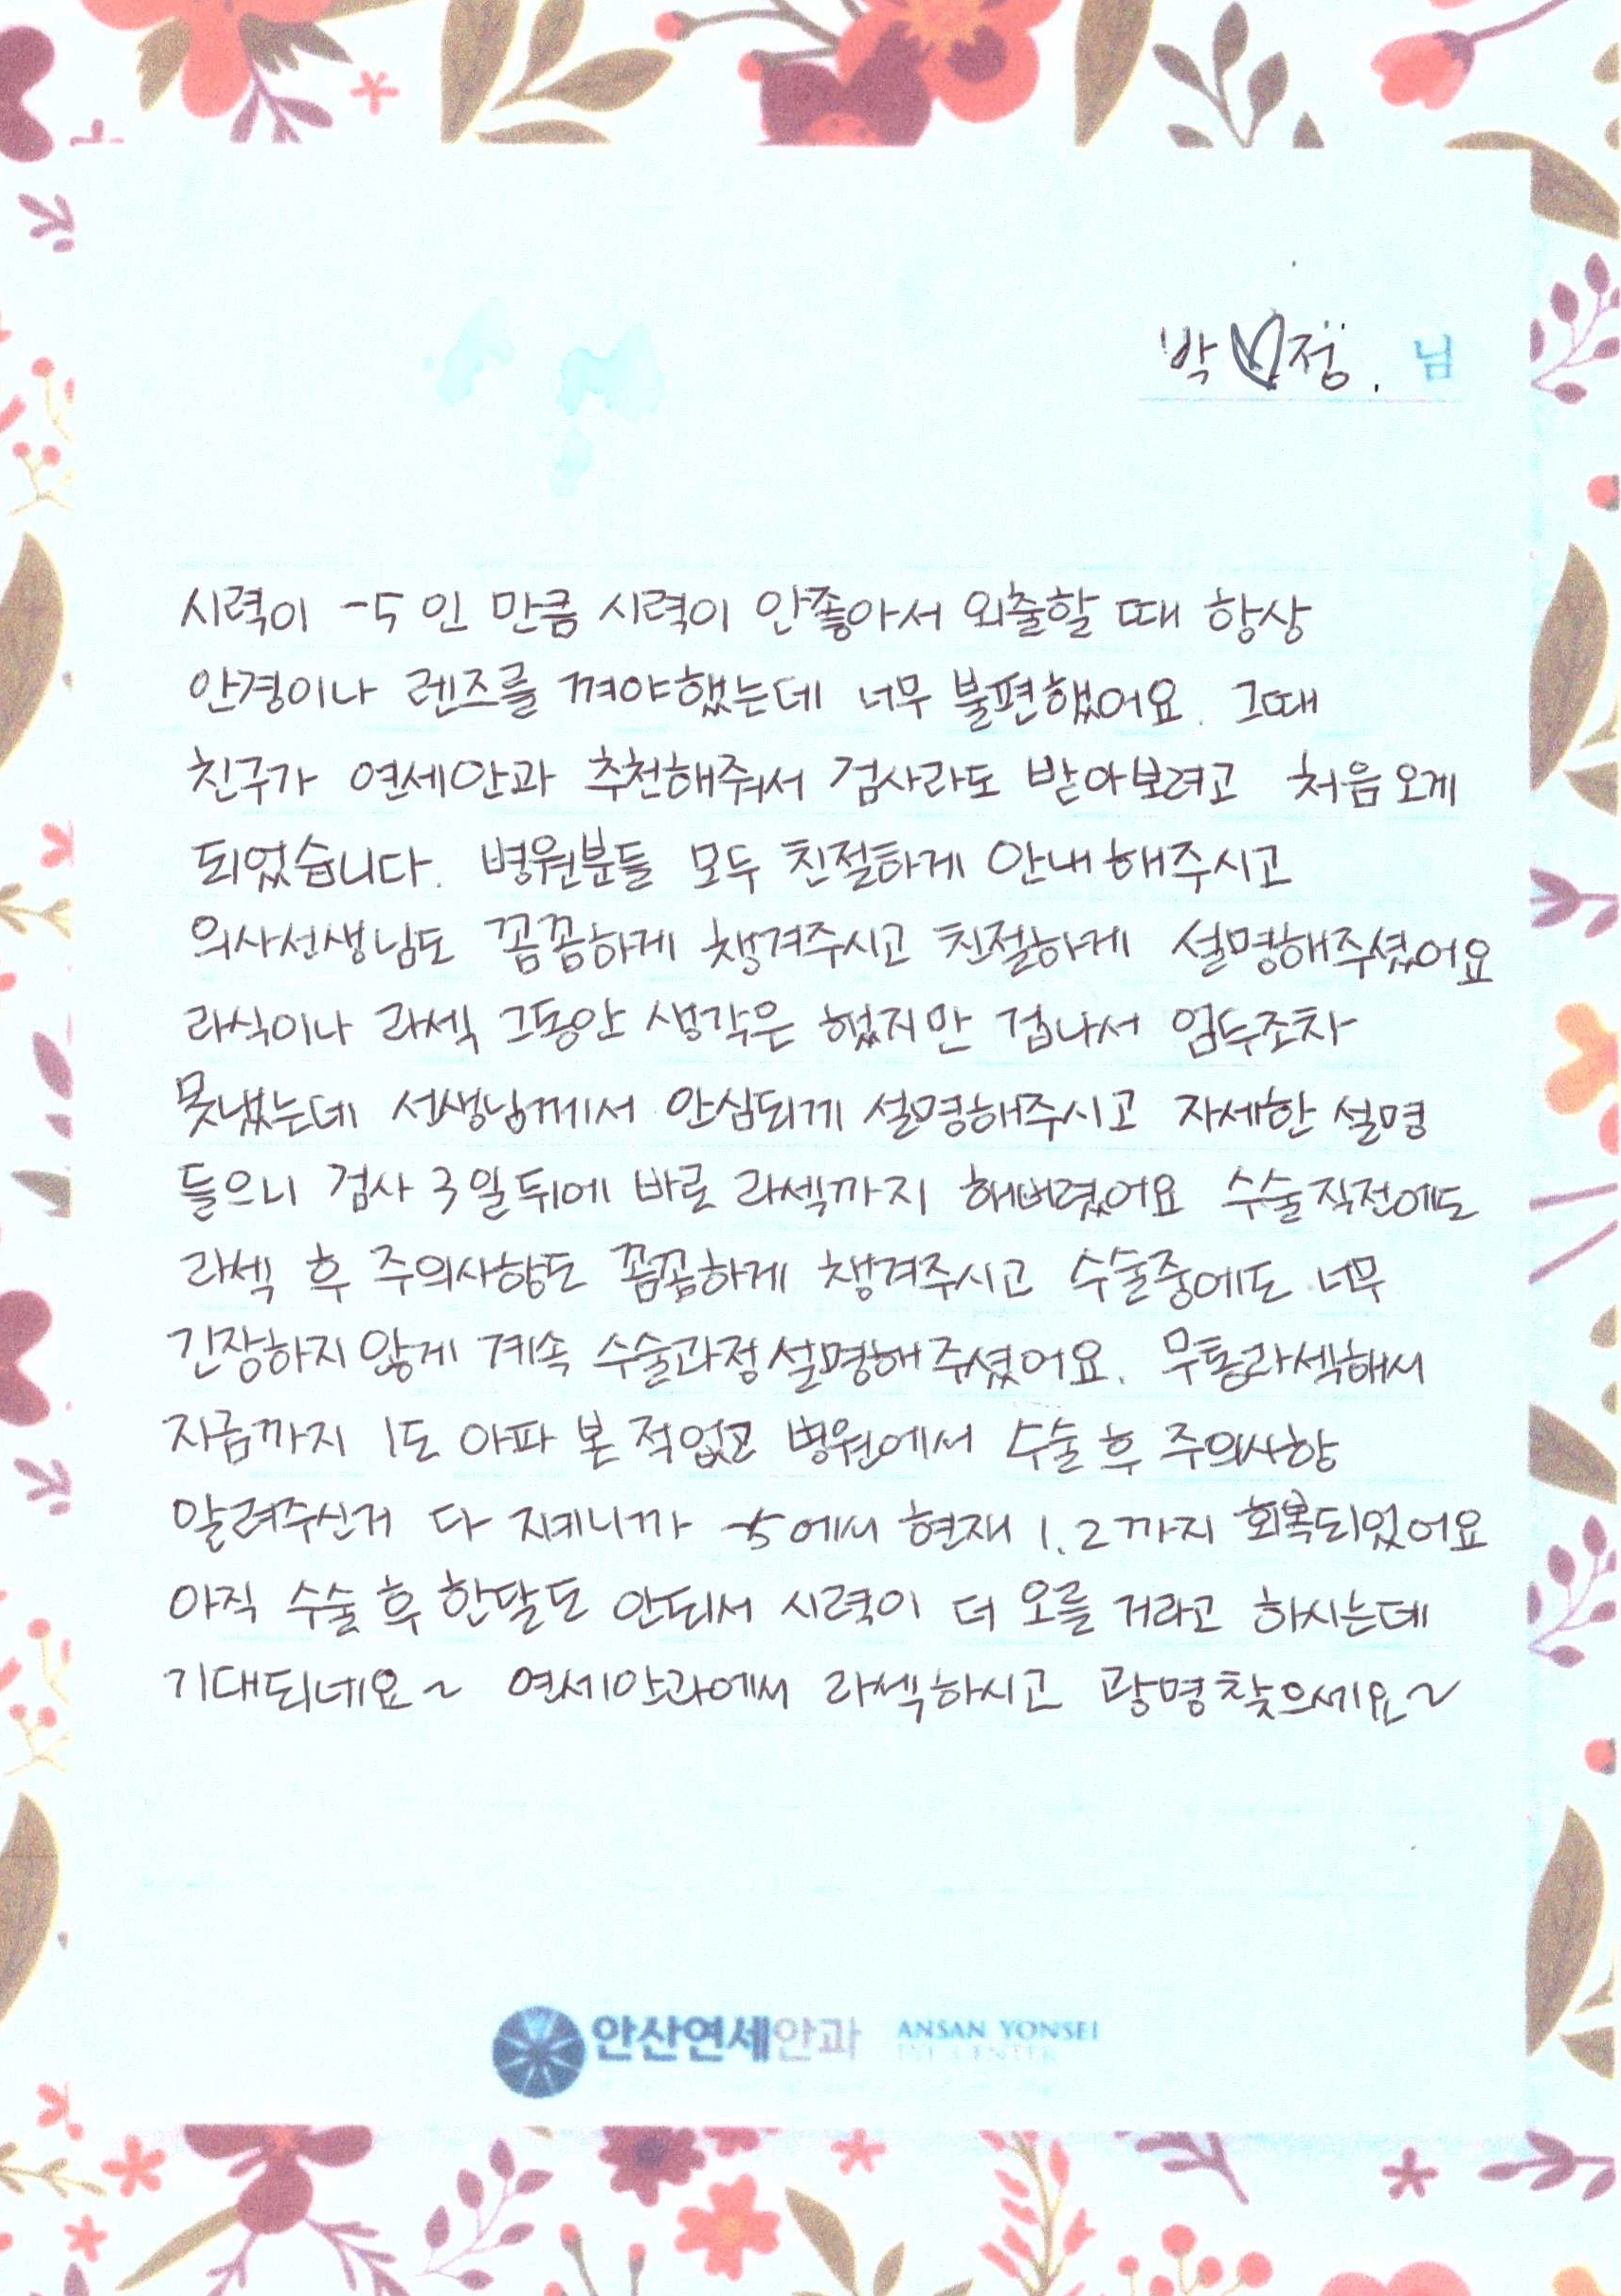 박♡정. 님
시력이 -5 인 만큼 시력이 안좋아서 외출할 때 항상
안경이나 렌즈를 껴야했는데 너무 불편했어요. 그때
친구가 연세안과 추천해줘서 검사라도 받아보려고 처음 오게
되었습니다. 병원분들 모두 친절하게 안내해주시고
의사선생님도 꼼꼼하게 챙겨주시고 친절하게 설명해주셨어요
라식이나 라섹 그동안 생각은 했지만 겁나서 엄두조차
못냈는데 선생님께서 안심되게 설명해주시고 자세한 설명
들으니 검사 3일뒤에 바로 라섹까지 해버렸어요 수술직전에도
라섹 후 주의사항도 꼼꼼하게 챙겨주시고 수술중에도 너무
긴장하지 않게 계속 수술과정 설명해주셨어요. 무통라섹해서
지금까지 1도 아파 본 적없고 병원에서 수술 후 주의사항
알려주신거 다 지키니까 -5에서 현재 1.2까지 회복되었어요
아직 수술 후 한달도 안되서 시력이 더 오를 거라고 하시는데
기대되네요~ 연세안과에서 라섹하시고 광명찾으세요~
안산연세안과 ANSAN YONSEI
EYE CENTER